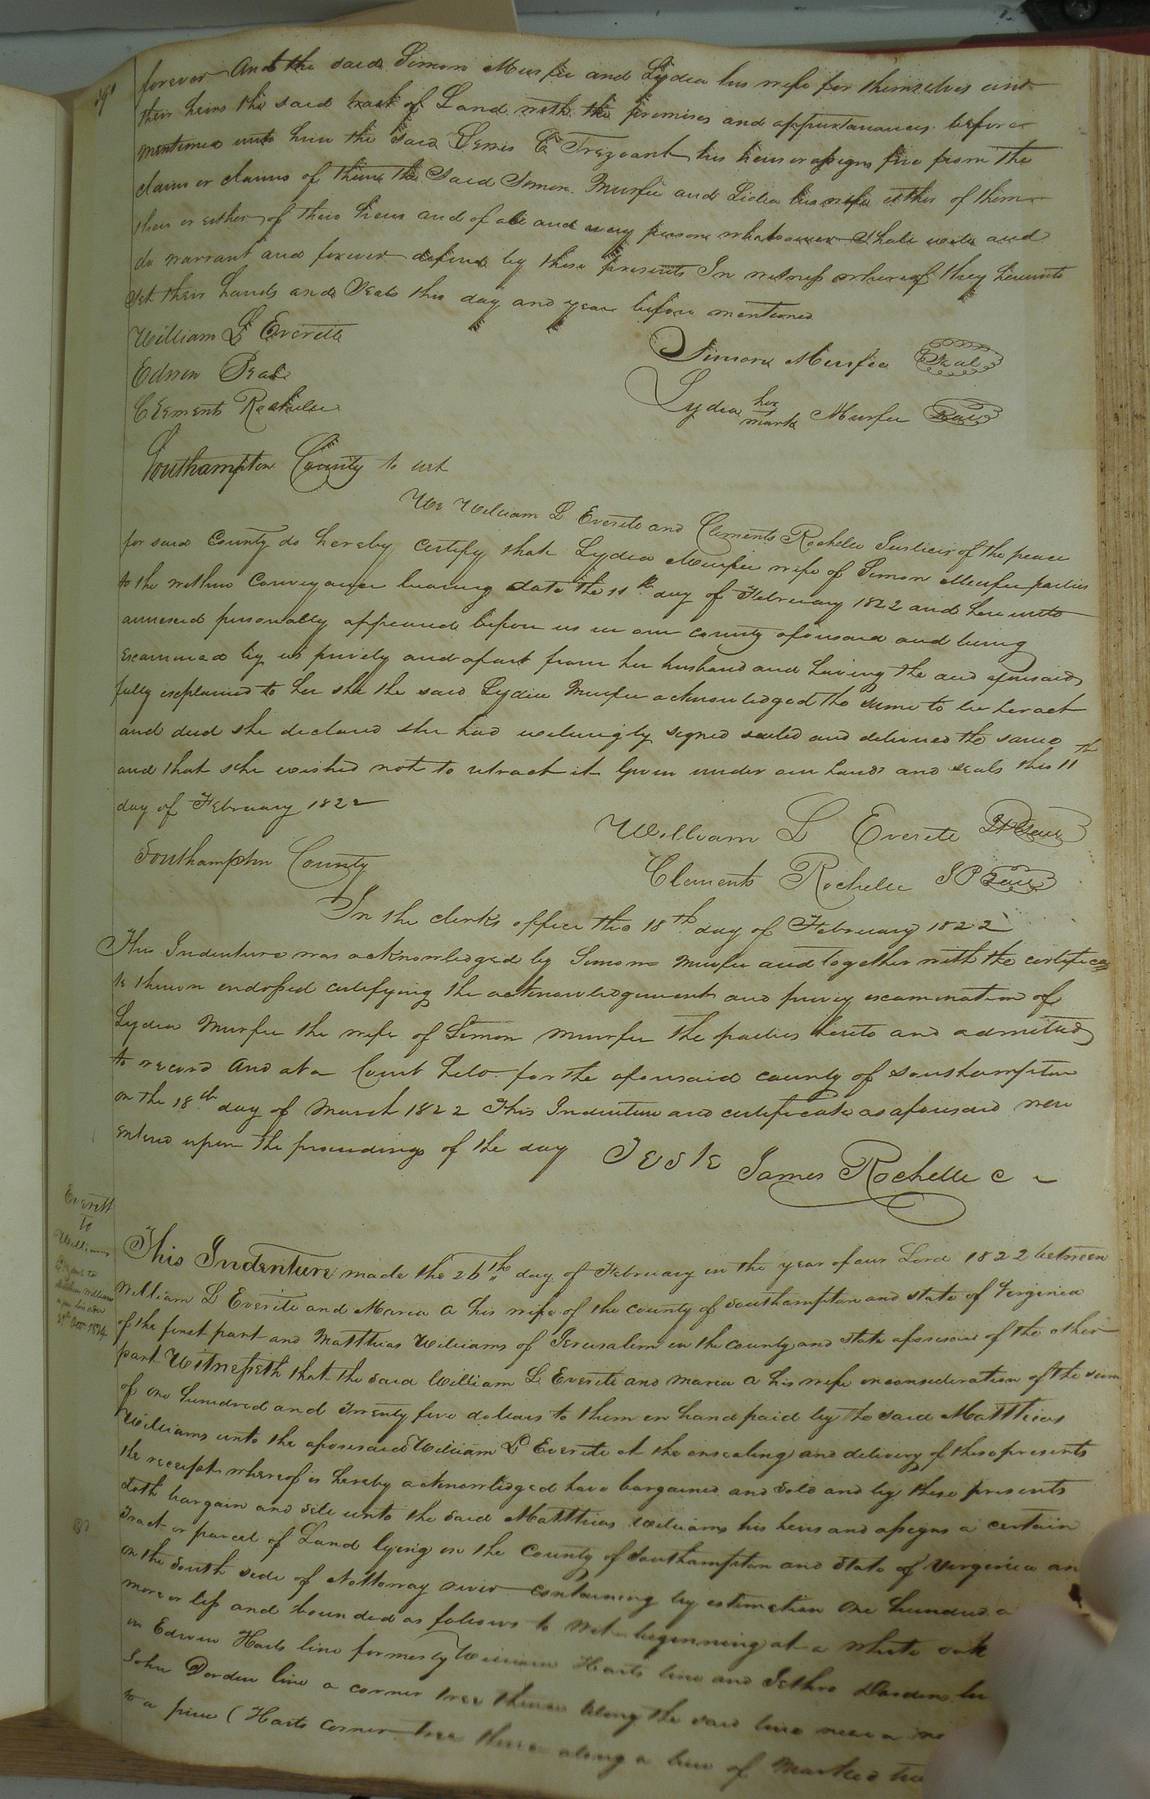 forever And the said Simon Murfee and Lydia his wife for themselves and
their heirs the said track of Land with the premises and appurtanances before
mentioned unto him the said Lewis C Trezvant his heirs or assigns free from the
claim or claims of them the Said Simon Murfee and Lidia his wife either of them
their or either of their heirs and of all and every person whatsoever shall will and
do warrant and forever defend by these presents In witness whereof they hereunto
set their hands and Seals this day and year before mentioned
William L Everitt
Simon Murfee Seal
Edwin
Clements Rochelle
Lydia her mark Murfee Seal
Southampton County to wit
We William L Everite and Clements Rochelle Justices of the peace
for said County do hereby certify that Lydia Murfee wife of Simon Murfee parties
to the within Conveyance bearing date the 11th day of February 1822 and hereunto
annexed personally appeared before us in our county aforesaid and being
examined by us privily and apart from her husband and having the deed aforesaid
fully explained to her she the said Lydia Murfee acknowledged the same to be her act
and deed she declared she had willingly signed sealed and delivered the same
and that she wished not to retract it Given under our hands and seals this 11th
day of February 1822
William L Everite JP Seal
Southampton County
Clements Rochelle JP Seal
In the clerks office the 18th day of February 1822
This Indenture was acknowledged by Simon Murfee and together with the certifica
te thereon endorsed certifying the acknowledgement and privy examination of
Lydia Murfee the wife of Simon Murfee the parties hereto and admitted
to record And at a Court held for the aforesaid county of Southampton
on the 18th day of March 1822 This Indenture and certificate as aforesaid were
entered upon the proceedings of the day
Teste James Rochelle c
Everitt
To
Williams
to
Williams
Octo 1824
This Indenture made the 26th day of February in the year of our Lord 1822 between
William L Everite and Maria A his wife of the county of Southampton and state of Virginia
of the first part and Matthias Williams of Jerusalem in the county and state aforesaid of the other
part Witnesseth that the said William L Everite and Maria A his wife in consideration of the sum
of one hundred and Twenty five dollars to them in hand paid by the said Matthias
Williams unto the aforesaid William L Everite at the ensealing and delivery of these presents
the receipt whereof is hereby acknowledged have bargained and sold and by these presents
doth bargain and sell unto the said Matthias Williams his heirs and assigns a certain
Tract or parcel of Land lying in the County of Southampton and State of Virginia an
on the South side of Nottoway river containing by estimation One hundred a
more or less and bounded as follows to wit beginning at a white oak
in Edwin Harts line formerly William Harts line and Jethro Darden
John Darden line a corner tree thence along the said line
to a pine (Harts corner tree thence along a line of marked